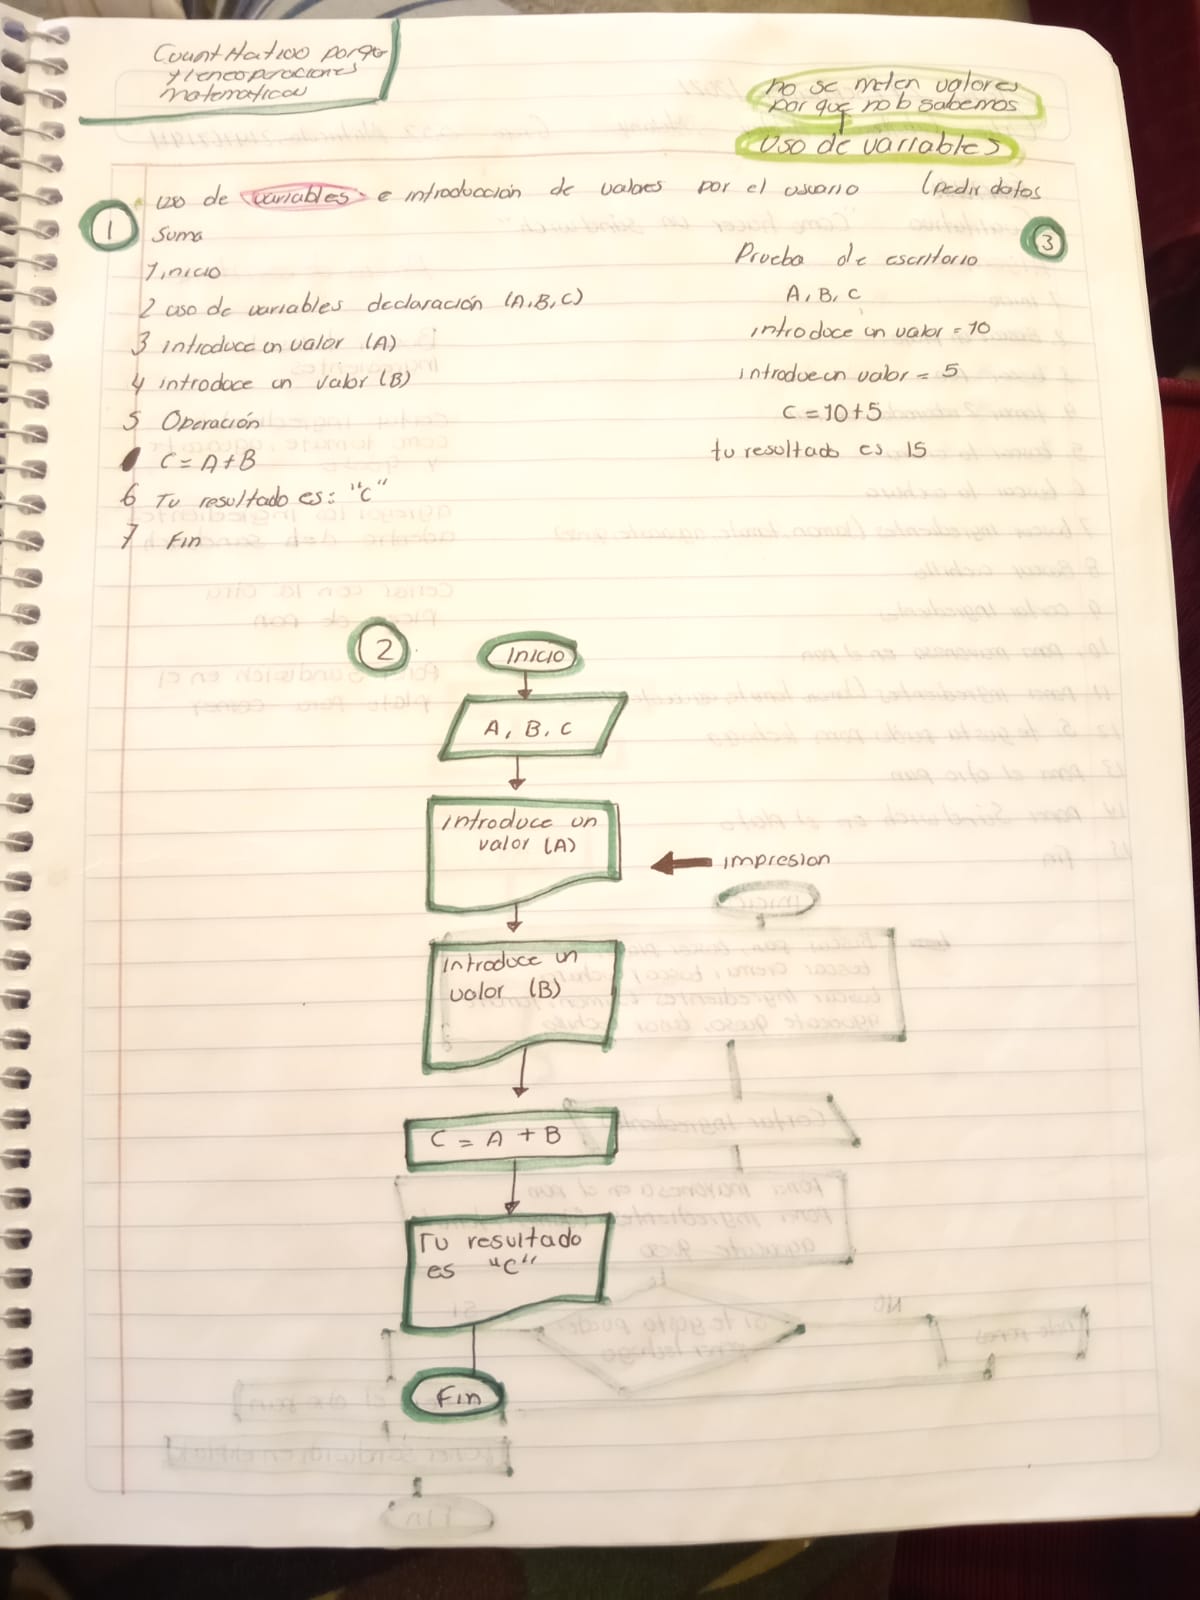 Cuantitativo porqe
tiene operaciones
matematicas
no se meten valores
por que no lo sabemos
Uso de variables
uso de variables e introducción de valores por el usuario (pedir datos
1
Suma
1, inicio
2 uso de variables declaración (A, B, C)
3 introduce un valor (A)
4 introduce un valor (B)
5 Operación
C = A + B
6 Tu resultado es: "C"
7 Fin
3
Prueba de escritorio
A, B, C
introduce un valor = 10
introduce un valor = 5
C = 10 + 5
tu resultado es 15
2
Inicio
A, B, C
Introduce un
valor (A)
impresion
Introduce un
valor (B)
C = A + B
Tu resultado
es "C"
Fin